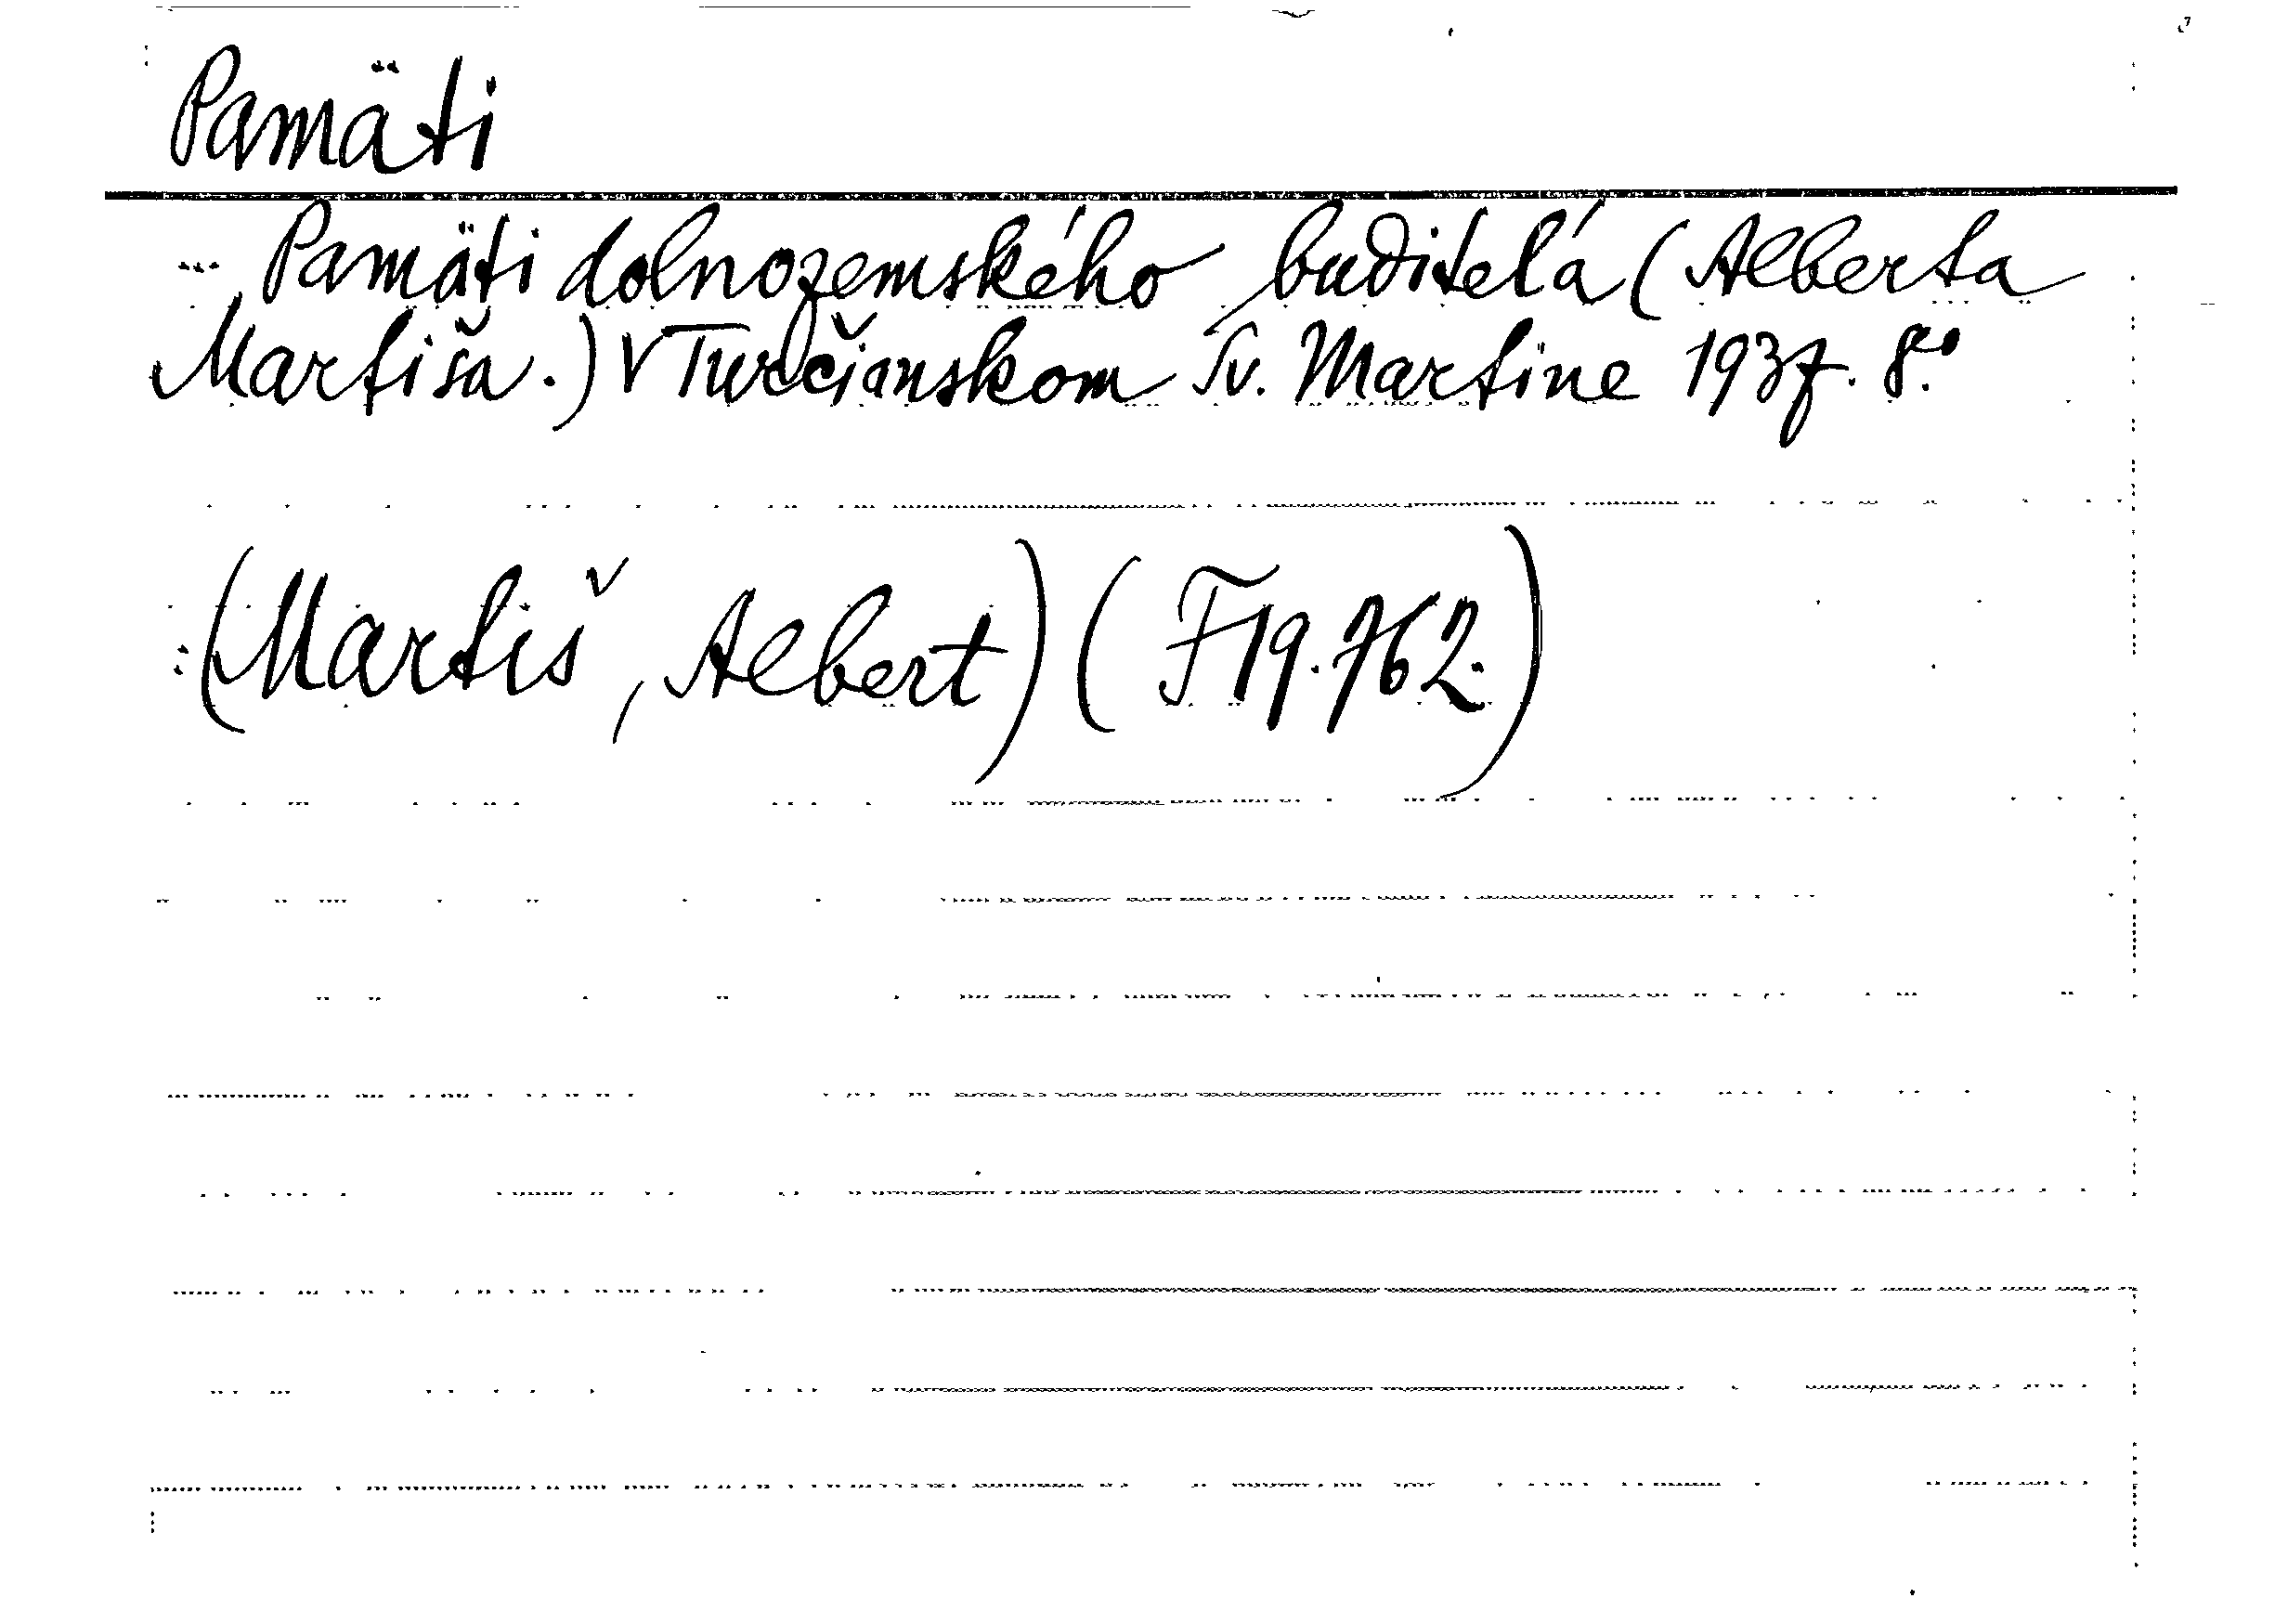 Pamäti
Pamäti dolnozemského buditelá (Alberta
Martiša.) V Turčianskom Sv. Martine 1937. 8.°
(Martiš, Albert) (F 19.762.)